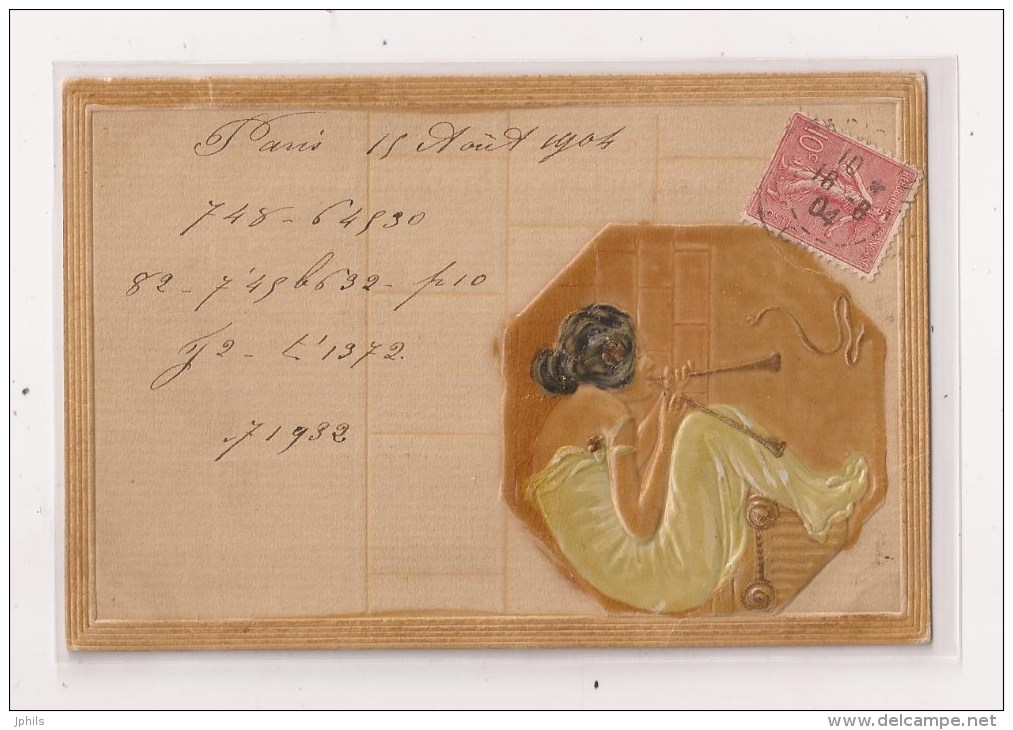 Paris 15 Août 1904
748-64930
82-7'49b632-p10
J2-t'1372.
71932
10
16-8
04
jphils
www.delcampe.net